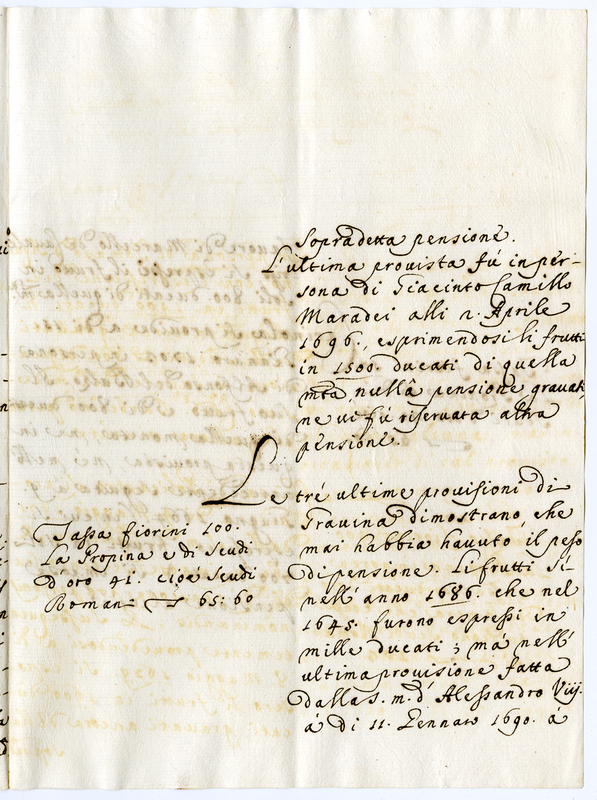 Sopradetta pensione.
L'ultima provista fú in per-
sona di Giacinto Camillo
Maradei alli 2. Aprile
1696., esprimendosi li frutti
in 1500. ducati di quella
mta nullâ pensione gravati,
ne vi fú riservata altra
pensione.
Le tré ultime provisioni di
Gravina dimostrano, che
mai habbia havuto il peso
di pensione. Li frutti si
nell' anno 1686. che nel
1645. furono espressi in
mille ducati; má nell'
ultima provisione fatta
dalla s. m. d' Alessandro Viij.
á di 11. Gennaro 1690. á
Tassa fiorini 100.
La Propina e di Scudi
d'oro 41. cioé Scudi
Romani 65: 60